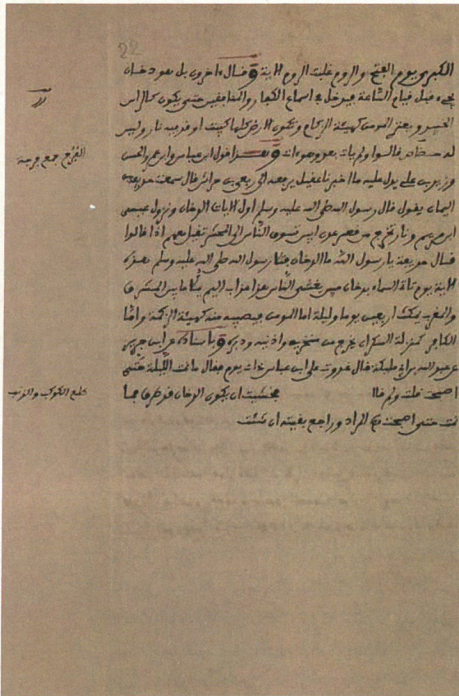 22
الكبرى يوم الفتح والروم غلبت الروم الاية وقال ءاخرون بل هو دخان
يجيء قبل قيام الساعة فيدخل في اسماع الكفار والمنافقين حتى يكون كالراس
الحنيذ ويعتري المومن كهيئة الزكام وتكون الارض كلها كبيت اوقد فيه نار وليس
قالوا ولم يات بعد وهو ءات وهذا قول ابن عباس وابن عمر والحسن
وزيد بن علي يدل عليه ما اخبرنا عقيل يرفعه الى ربعي بن حراش قال سمعت حذيفة بن
اليمان يقول قال رسول الله صلى الله عليه وسلم اول الايات الدخان ونزول عيسى
ابن مريم ونار تخرج من قعر عدن ابين تسوق الناس الى المحشر تقيل معهم اذا قالوا
قال حذيفة يا رسول الله ما الدخان فتلا رسول الله صلى الله عليه وسلم هذه
الاية يوم تاتي السماء بدخان مبين يغشى الناس هذا عذاب اليم يملأ ما بين المشرق
والمغرب يمكث اربعين يوما وليلة اما المومن فيصيبه منه كهيئة الزكمة واما
الكافر كمنزلة السكران يخرج من منخريه واذنيه ودبره وباسناده عن ابن جرير
عن عبد الله بن ابي مليكة قال غدوت على ابن عباس ذات يوم فقال ما نمت الليلة حتى
اصبحت قلت ولم قال فخشيت ان يكون الدخان قد طرق فما
نمت حتى اصبحت المراد وراجع بقيته ان شئت
جمع
طلع الكوكب ذو الذنب